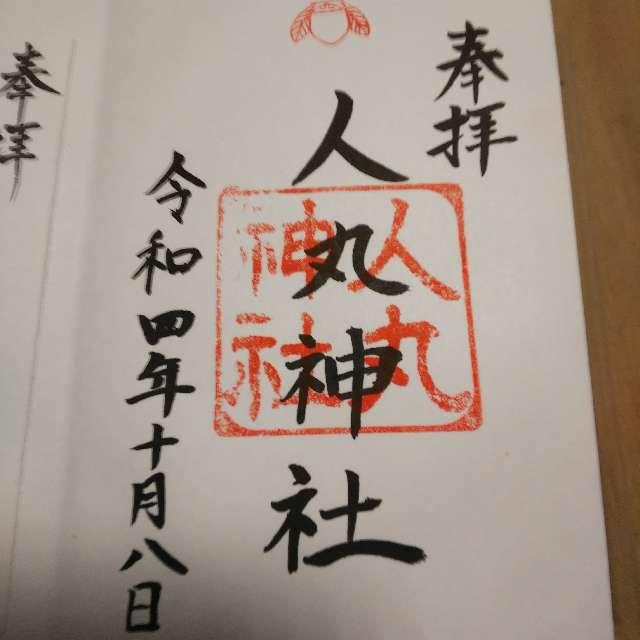 奉拝
人丸神社
人丸
神社
令和四年十月八日
奉拝